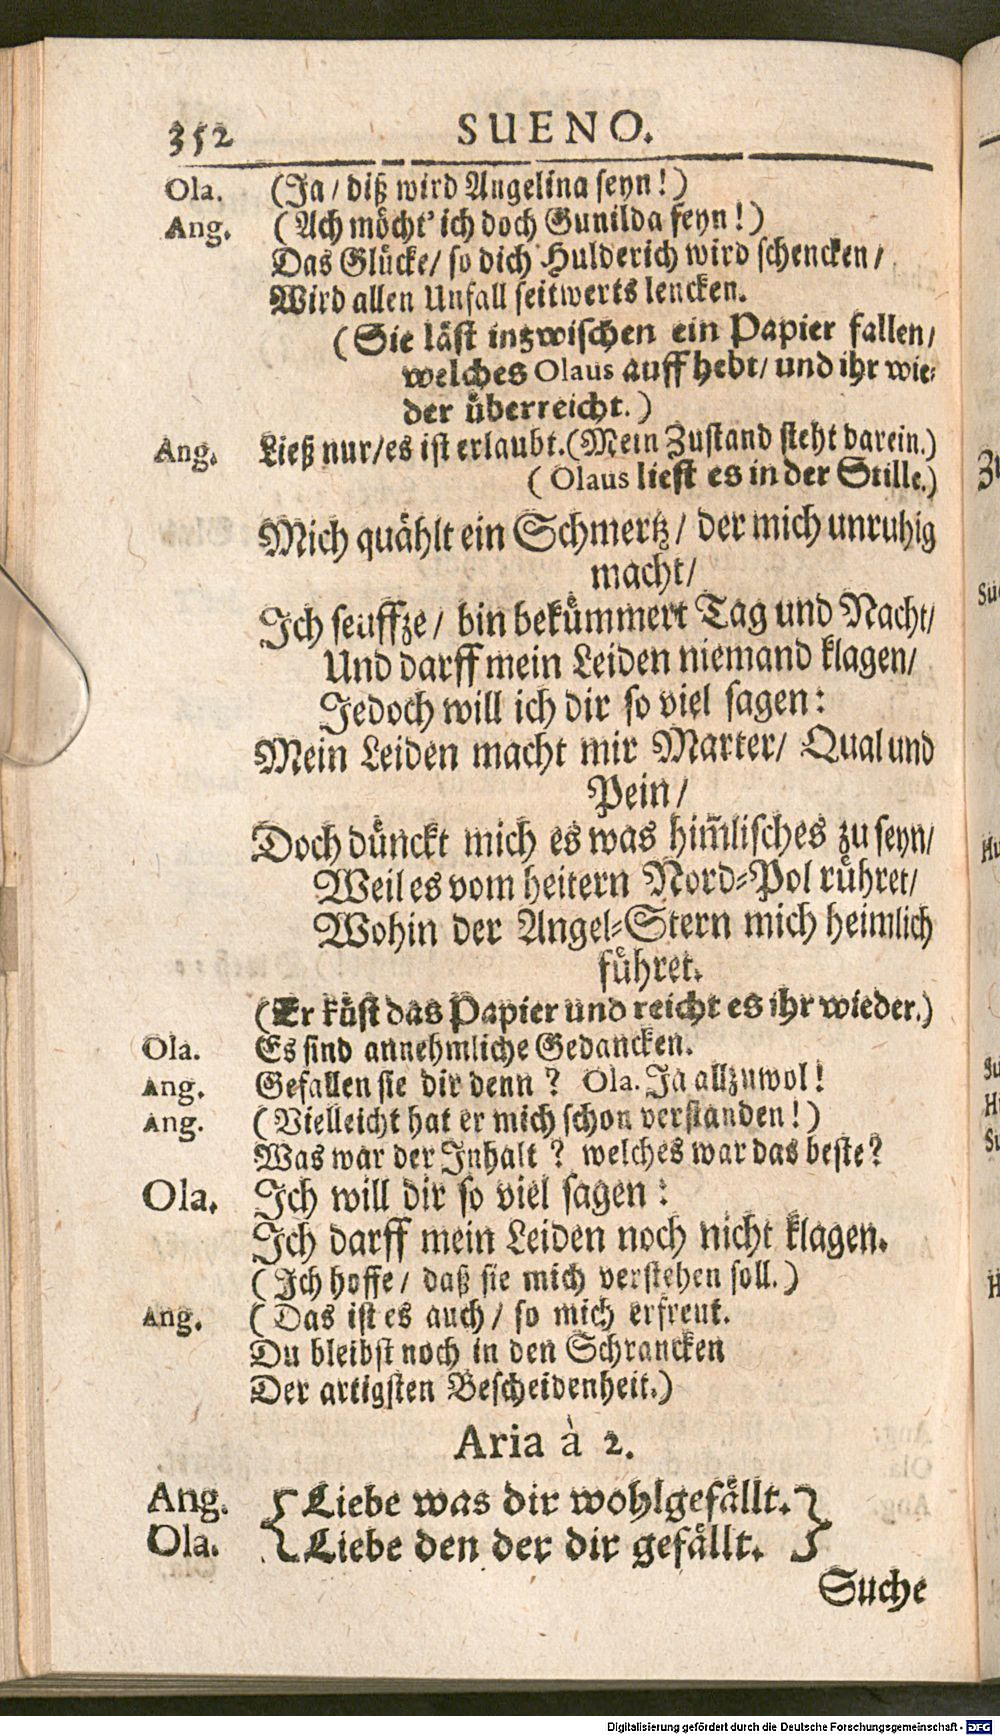 352 SUENO.
Ola. (Ja / diß wird Angelina seyn!)
Ang. (Ach möcht' ich doch Gunilda seyn!)
Das Glücke / so dich Hulderich wird schencken /
Wird allen Unfall seitwerts lencken.
(Sie läst inzwischen ein Papier fallen /
welches Olaus auff hebt / und ihr wie-
der überreicht.)
Ang. Ließ nur / es ist erlaubt. (Mein Zustand steht darein.)
(Olaus liest es in der Stille.)
Mich quählt ein Schmertz / der mich unruhig
macht /
Ich seuffze / bin bekümmert Tag und Nacht /
Und darff mein Leiden niemand klagen /
Jedoch will ich dir so viel sagen:
Mein Leiden macht mir Marter / Qual und
Pein /
Doch dünckt mich es was him̃lisches zu seyn /
Weil es vom heitern Nord-Pol rühret /
Wohin der Angel-Stern mich heimlich
führet.
(Er küst das Papier und reicht es ihr wieder.)
Ola. Es sind annehmliche Gedancken.
Ang. Gefallen sie dir denn? Ola. Ja allzuwol!
Ang. (Vielleicht hat er mich schon verstanden!)
Was war der Inhalt? welches war das beste?
Ola. Ich will dir so viel sagen:
Ich darff mein Leiden noch nicht klagen.
(Ich hoffe / daß sie mich verstehen soll.)
Ang. (Das ist es auch / so mich erfreut.
Du bleibst noch in den Schrancken
Der artigsten Bescheidenheit.)
Aria à 2.
Ang. { Liebe was dir wohlgefällt. }
Ola. { Liebe den der dir gefällt. }
Suche
Digitalisierung gefördert durch die Deutsche Forschungsgemeinschaft - DFG